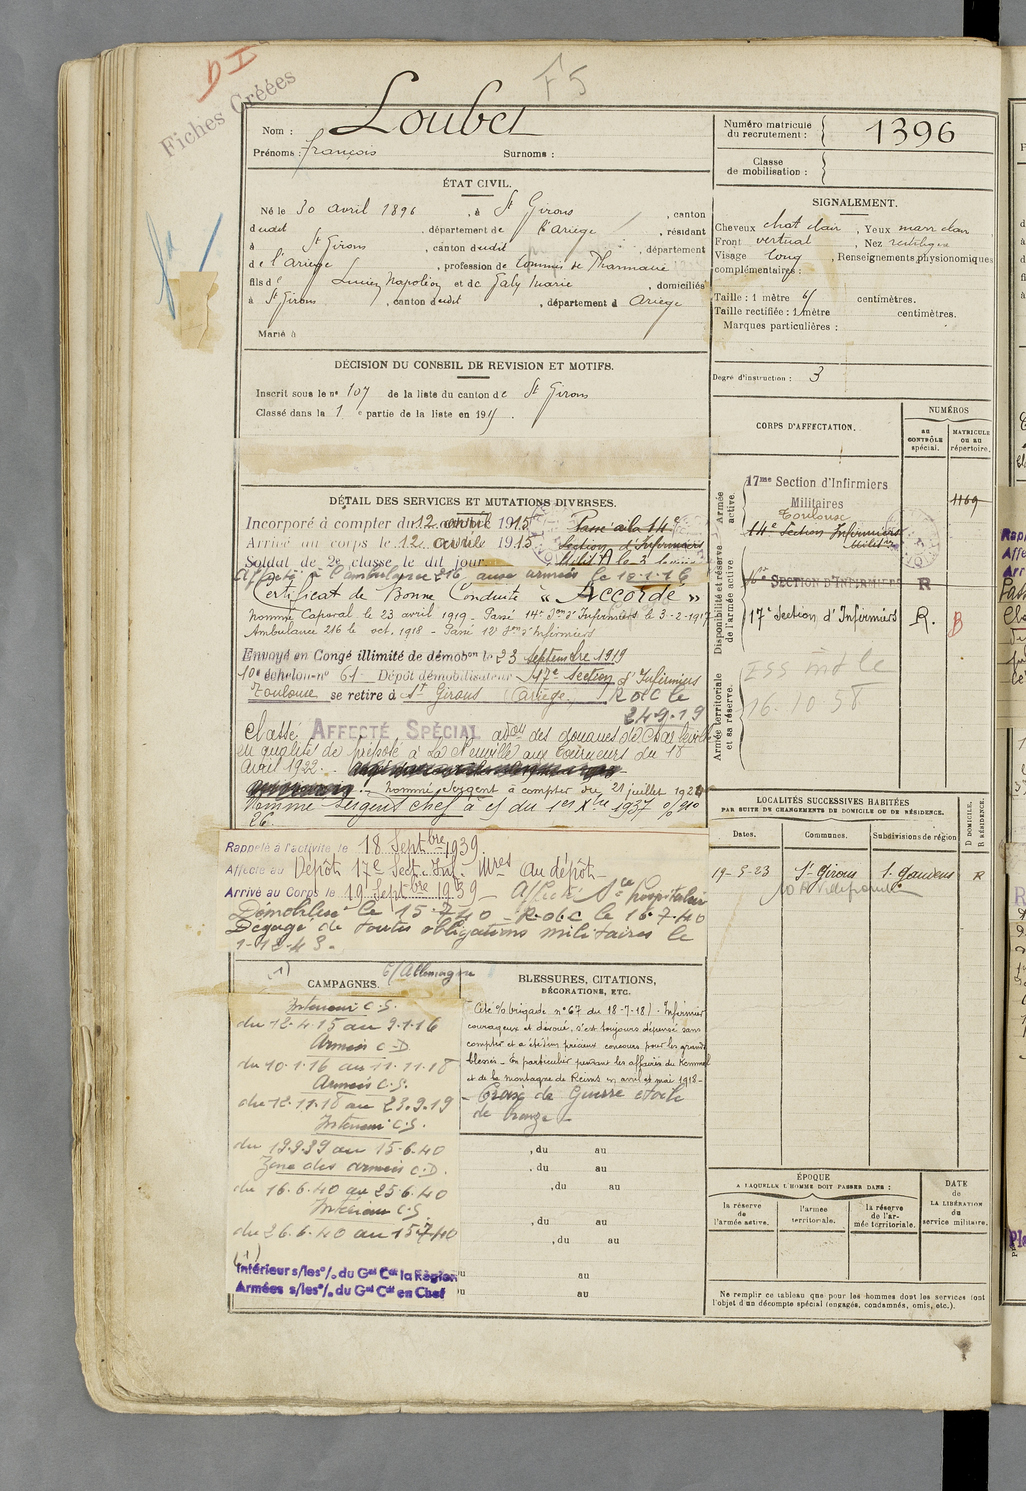 D I
F 5
Fiches Créées
Nom : Loubet
Prénoms : François Surnoms :
Numéro matricule du recrutement : 1396
Classe de mobilisation :
ÉTAT CIVIL.
Né le 30 avril 1896, à St Girons, canton
dudit, département de l'Ariège, résidant
à St Girons, canton dudit, département
de l'Ariège, profession de Commis de Pharmacie
fils de Lucien Napoléon et de Galy Marie, domiciliés
à St Girons, canton dudit, département d Ariège
Marié à
SIGNALEMENT.
Cheveux chat clair, Yeux marr clair
Front vertical, Nez rectiligne
Visage long, Renseignements physionomiques
complémentaires :
Taille : 1 mètre 61 centimètres.
Taille rectifiée : 1 mètre centimètres.
Marques particulières :
Degré d'instruction : 3
DÉCISION DU CONSEIL DE REVISION ET MOTIFS.
Inscrit sous le no 107 de la liste du canton de St Girons
Classé dans la 1 e partie de la liste en 191
CORPS D'AFFECTATION.
NUMÉROS
AU CONTRÔLE spécial.
MATRICULE OU AU répertoire.
Armée active.
17me Section d'Infirmiers
Militaires 1169
Toulouse
14e Section Infirmiers
Militaires
Disponibilité et réserve de l'armée active.
16e SECTION D'INFIRMIERS R
17e Section d'Infirmiers R. B
Armée territoriale et sa réserve.
ESS
16.10 58
DÉTAIL DES SERVICES ET MUTATIONS DIVERSES.
Incorporé à compter du 12 avril 1915 Passé à la 14e
Arrivé au corps le 12 avril 1915. Section d'Infirmiers
Soldat de 2e classe le dit jour
Affecté à l'ambulance 216 aux armées le 10.1.16
Certificat de Bonne Conduite « Accordé »
Nommé Caporal le 23 avril 1919 - Passé 14e Son d'Infirmiers le 3-2-1917
Ambulance 216 le oct. 1918 - Passé 12e Son d'Infirmiers
Envoyé en Congé illimité de démobon le 23 Septembre 1919
10e échelon no 61 Dépôt démobilisateur 17e Section d'Infirmiers
Toulouse se retire à St Girons (Ariège) R d C le
24.9.19
Classé AFFECTÉ SPÉCIAL adon des douanes de Charleville
en qualité de préposé à La Neuville aux Tourneurs du 18
Avril 1922.
Nommé Sergent à compter du 21 juillet 1924
Nommé Sergent chef à cr du 1er Xbre 1937 o/ no
26.
Rappelé à l'activité le 18 Septbre 1939
Affecté au Dépôt 17e Sect. Inf. Mres au dépôt
Arrivé au Corps le 19 Septbre 1939 - Affecté Sce hospitalier
Démobilisé le 15.7.40 - R d C le 16.7.40
Dégagé de toutes obligations militaires le
1-12-43.
LOCALITÉS SUCCESSIVES HABITÉES
PAR SUITE DE CHANGEMENTS DE DOMICILE OU DE RÉSIDENCE.
Dates. Communes. Subdivisions de région
D DOMICILE. R RÉSIDENCE.
19-5-23 St Girons St Gaudens R
(1) C/Allemagne
CAMPAGNES.
Intérieur C.S.
du 12.4.15 au 9.1.16
Armées C.D
du 10.1.16 au 11.11.18
Armées C.S.
du 12.11.18 au 23.9.19
Intérieur C.S.
du 19.9.39 au 15.6.40
Zone des armées C.D.
du 16.6.40 au 25.6.40
Intérieur C.S.
du 26.6.40 au 15.7.40
(1)
Intérieur s/les o/. du Gal Cdt la Région
Armées s/les o/. du Gal Cdt en Chef
BLESSURES, CITATIONS,
DÉCORATIONS, ETC.
Cité o/ brigade no 67 du 18-7-18). Infirmier
courageux et dévoué, s'est toujours dépensé sans
compter et a été d'un précieux concours pour les grands
blessés - En particulier pendant les affaires du Kemmel
et de la montagne de Reims en avril et mai 1918 -
- Croix de Guerre étoile
de bronze -
, du au
, du au
, du au
, du au
, du au
au
au
ÉPOQUE
A LAQUELLE L'HOMME DOIT PASSER DANS :
la réserve de l'armée active.
l'armée territoriale.
la réserve de l'armée territoriale.
DATE de LA LIBÉRATION du service militaire.
Ne remplir ce tableau que pour les hommes dont les services font
l'objet d'un décompte spécial (engagés, condamnés, omis, etc.).